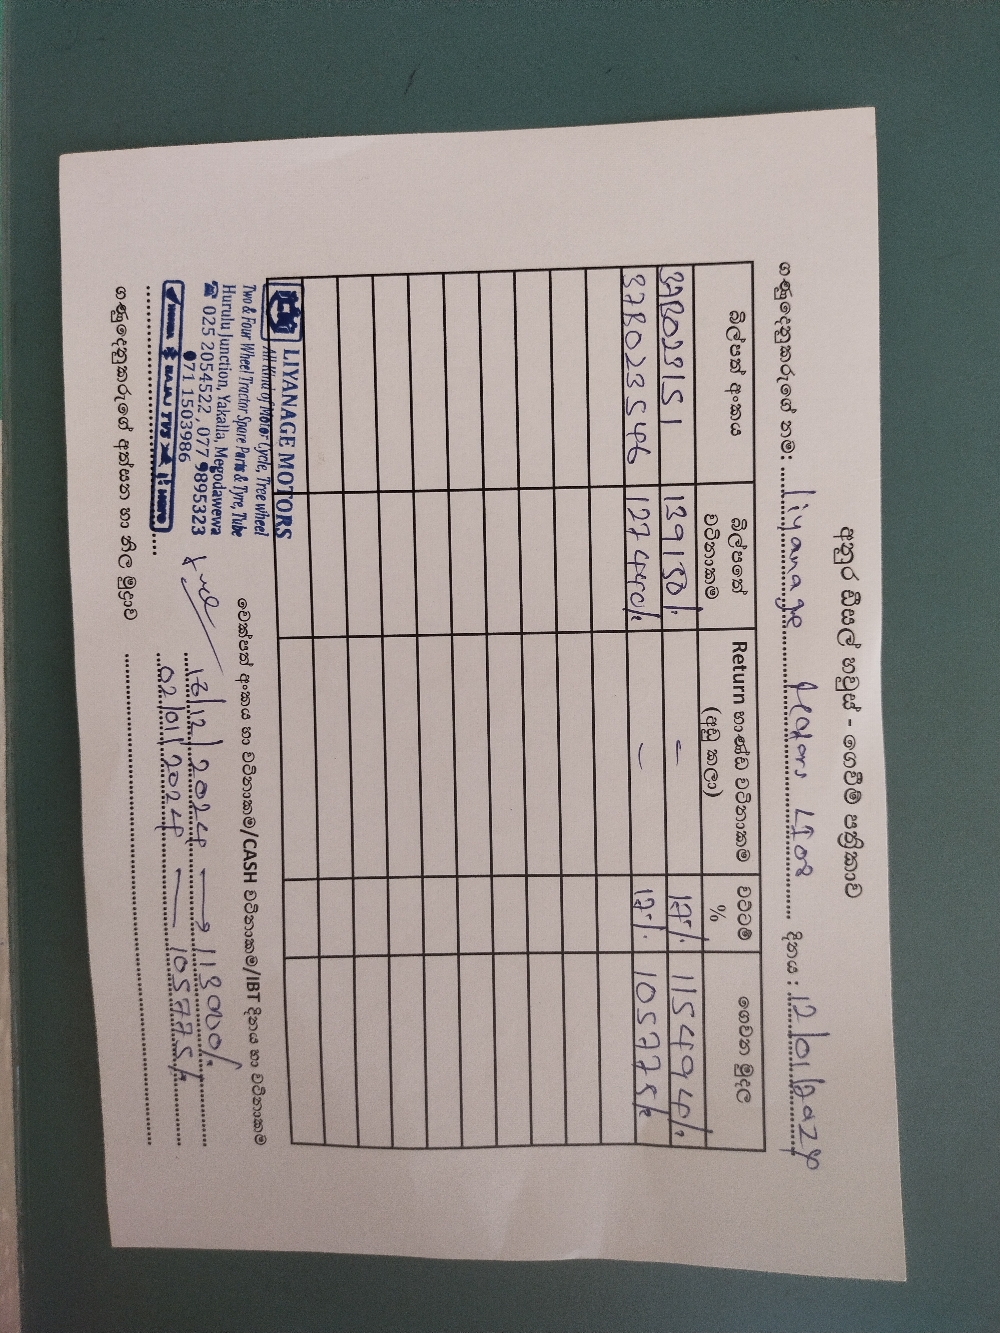 අනුර ඩීසල් හවුස් - ගෙවීම් පත්‍රිකාව
ගණුදෙනුකරුගේ නම: liyanage Motors දිනය:
බිල්පත් අංකය බිල්පතේ වටිනාකම Return භාණ්ඩ වටිනාකම (අඩු කලා) වට්ටම % ගෙවන මුදල
37B023151 139150/- - 17% 115494/-
37B023546 127440/- - 17% 105775/-
LIYANAGE MOTORS
All Kind of Motor Cycle, Tree wheel
Two & Four Wheel Tractor Spare Parts & Tyre, Tube
Hurulu Junction, Yakalla, Megodawewa
☎ 025 2054522, 077 9895323
071 1503986
HONDA BAJAJ TVS HERO
ගණුදෙනුකරුගේ අත්සන හා නිල මුද්‍රාව
චෙක්පත් අංකය හා වටිනාකම/CASH වටිනාකම/IBT දිනය හා වටිනාකම
13/12/2024 → 113000/-
02/01/2024 — 105775/-